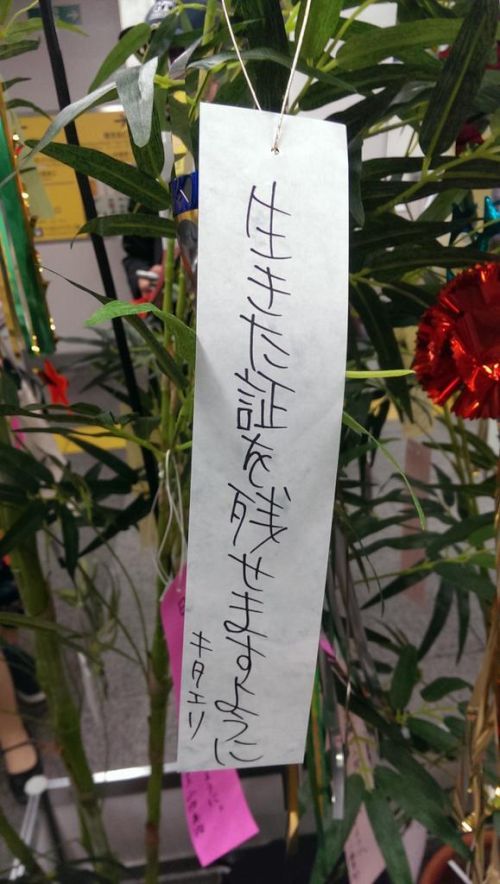 生きた証を残せますように
キタエリ